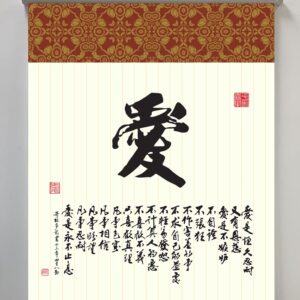 愛
愛是恆久忍耐
又有恩慈
愛是不嫉妒
不自誇
不張狂
不作害羞的事
不求自己的益處
不輕易發怒
不計算人的惡
不喜歡不義
只喜歡真理
凡事包容
凡事相信
凡事盼望
凡事忍耐
愛是永不止息